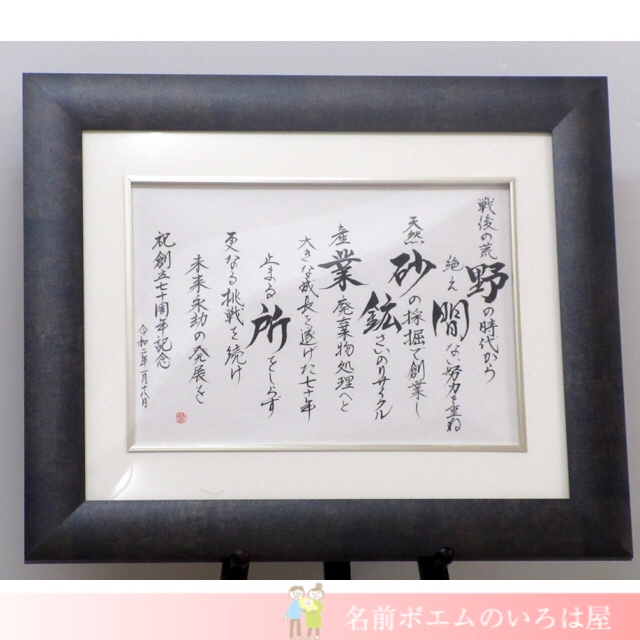 戦後の荒野の時代から
絶え間ない努力を重ね
天然砂の採掘で創業し
鉱さいのリサイクル
産業廃棄物処理へと
大きな成長を遂げた七十年
止まる所をしらず
更なる挑戦を続け
未来永劫の発展を
祝創立七十周年記念
令和二年一月十八日
名前ポエムのいろは屋